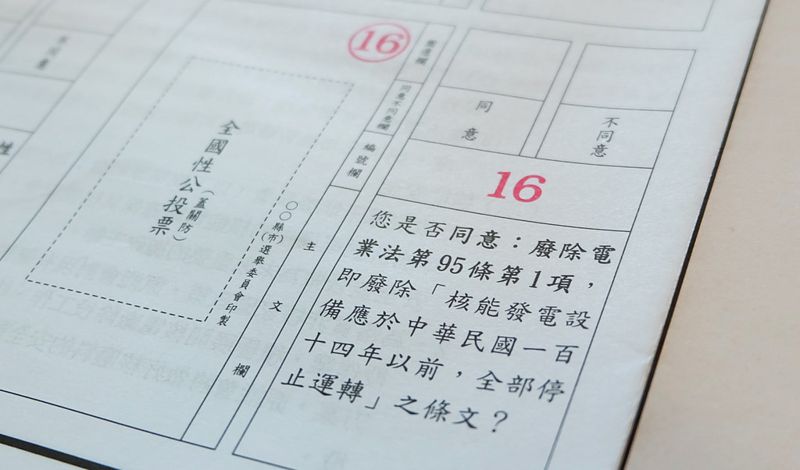 16
圈選欄
同意
不同意
不同意
同意不同意欄
編號欄
16
全國性公投票
(蓋關防)
○○縣(市)選舉委員會印製
主文欄
您是否同意：廢除電
業法第95條第1項，
即廢除「核能發電設
備應於中華民國一百
十四年以前，全部停
止運轉」之條文？